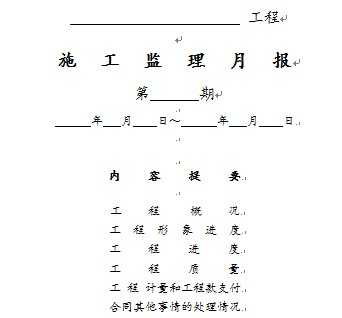 ________________________ 工程
施 工 监 理 月 报
第_______期
______年___月____日～______年___月____日
内 容 提 要
工 程 概 况
工 程 形 象 进 度
工 程 进 度
工 程 质 量
工 程 计量和工程款支付
合同其他事情的处理情况